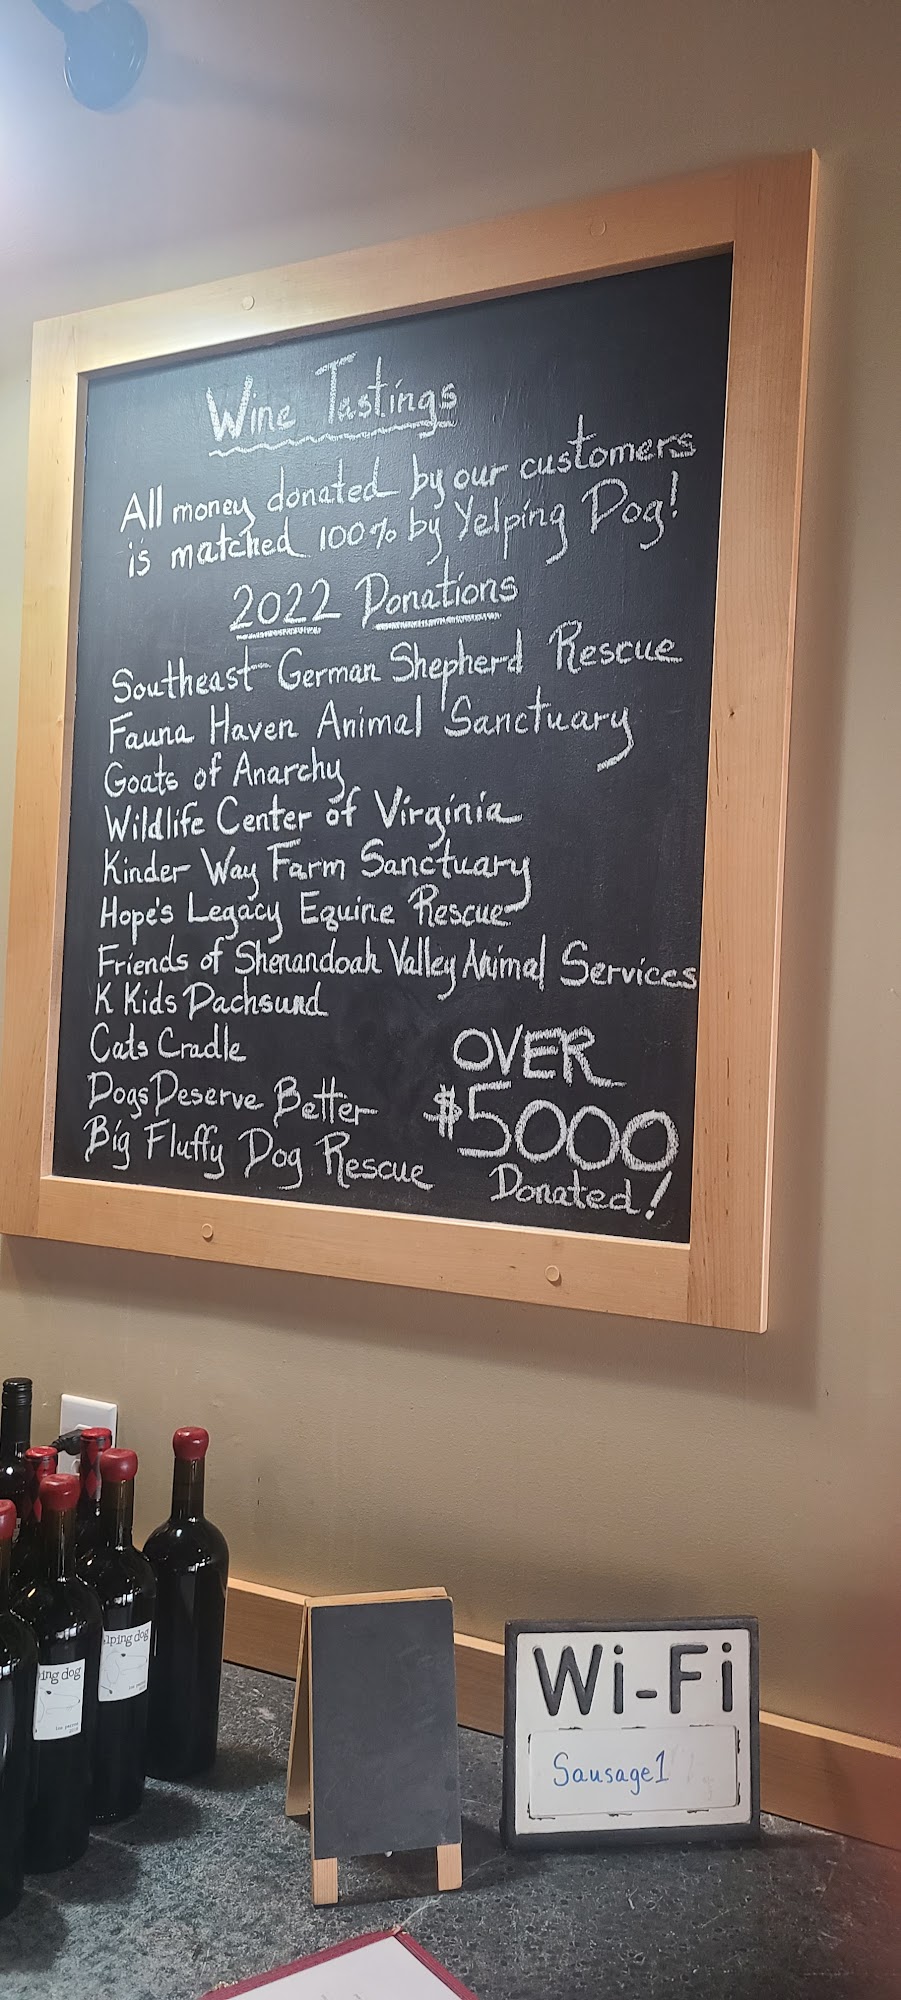 Wine Tastings
All money donated by our customers
is matched 100% by Yelping Dog!
2022 Donations
Southeast German Shepherd Rescue
Fauna Haven Animal Sanctuary
Goats of Anarchy
Wildlife Center of Virginia
Kinder Way Farm Sanctuary
Hope's Legacy Equine Rescue
Friends of Shenandoah Valley Animal Services
K Kids Dachsund
Cats Cradle
Dogs Deserve Better
Big Fluffy Dog Rescue
OVER
$5000
Donated!
lping dog
ing dog
Wi-Fi
Sausage1